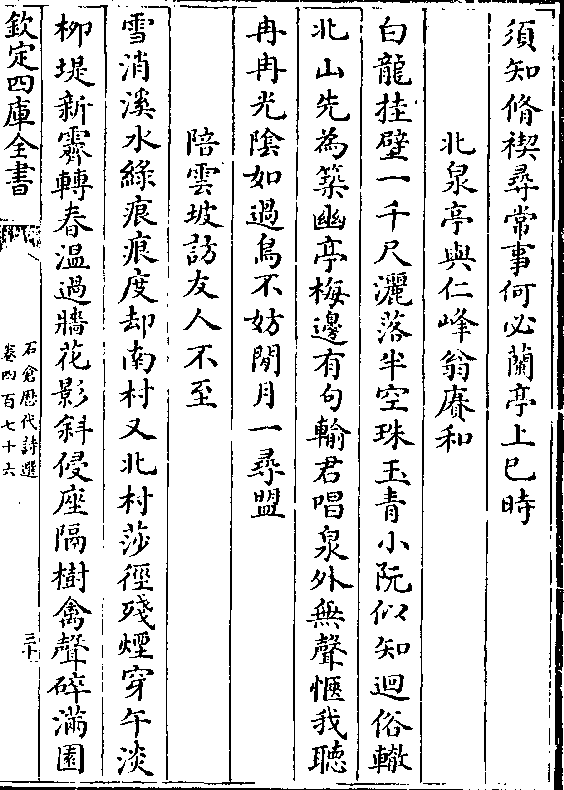 須知脩禊尋常事何必蘭亭上巳時
北泉亭與仁峰翁賡和
白龍挂壁一千尺灑落半空珠玉青小阮似知迴俗轍
北山先為築幽亭梅邊有句輸君唱泉外無聲愜我聽
冉冉光陰如過鳥不妨閒月一尋盟
陪雲坡訪友人不至
雪消溪水綠痕痕度却南村又北村莎徑殘煙穿午淡
柳堤新霽轉春温過牆花影斜侵座隔樹禽聲碎滿園
欽定四庫全書
石倉歷代詩選
卷四百七十六